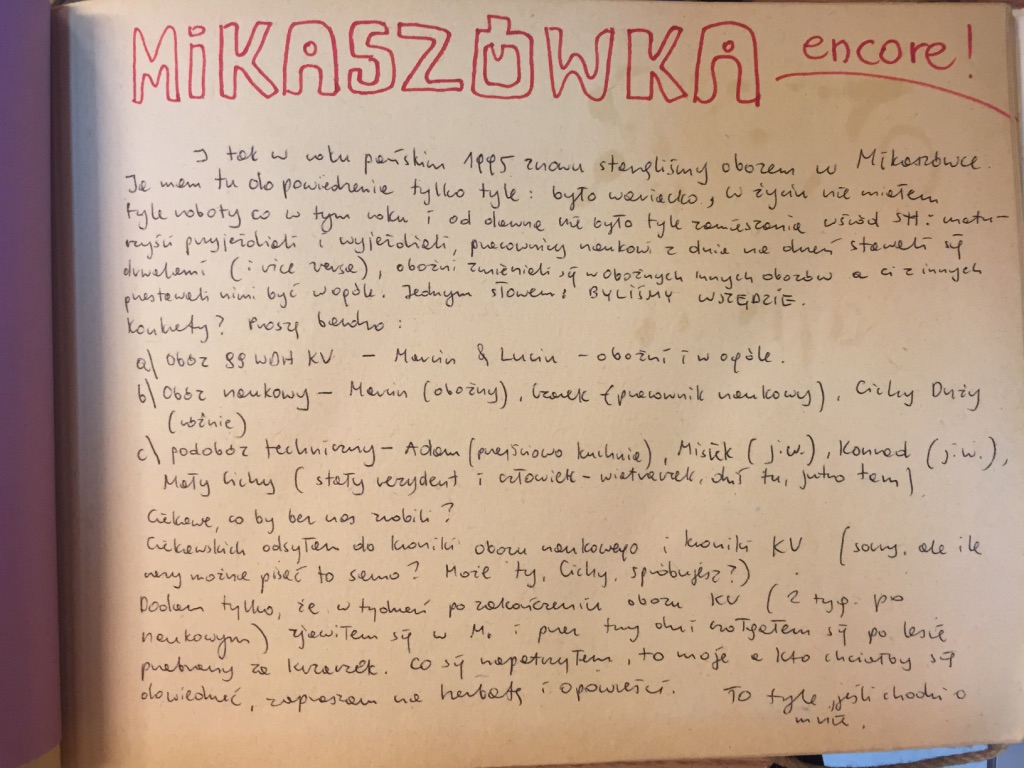 MiKASZÓWKA encore!
I tak w roku pańskim 1995 znowu stanęliśmy obozem w Mikaszówce.
Ja mam tu do powiedzenia tylko tyle: było wariacko, w życiu nie miałem
tyle roboty co w tym roku i od dawna nie było tyle zamieszania wśród SH: matu-
rzyści przyjeżdżali i wyjeżdżali, pracownicy naukowi z dnia na dzień stawali się
druhami (i vice versa), oboźni zmieniali się w oboźnych innych obozów a ci z innych
przestawali nimi być w ogóle. Jednym słowem: BYLIŚMY WSZĘDZIE.
Konkrety? Proszę bardzo:
a) Obóz 99 WDH KV – Marcin & Lucin – oboźni i w ogóle.
b) Obóz naukowy – Marcin (oboźny), Czarek (pracownik naukowy), Cichy Duży
(różnie)
c) podobóz techniczny – Adam (przejściowo kuchnia), Misiek (j.w.), Konrad (j.w.),
Mały Cichy (stały rezydent i człowiek – wiatraczek, dziś tu, jutro tam)
Ciekawe, co by bez nas zrobili?
Ciekawskich odsyłam do kroniki obozu naukowego i kroniki KV (sorry, ale ile
razy można pisać to samo? Może ty, Cichy, spróbujesz?)
Dodam tylko, że w tydzień po zakończeniu obozu KV (2 tyg. po
naukowym) zjawiłem się w M. i przez trzy dni czołgałem się po lesie
przebrany za krzaczek. Co się napatrzyłem, to moje a kto chciałby się
dowiedzieć, zapraszam na herbatę i opowieści. To tyle, jeśli chodzi o
mnie.